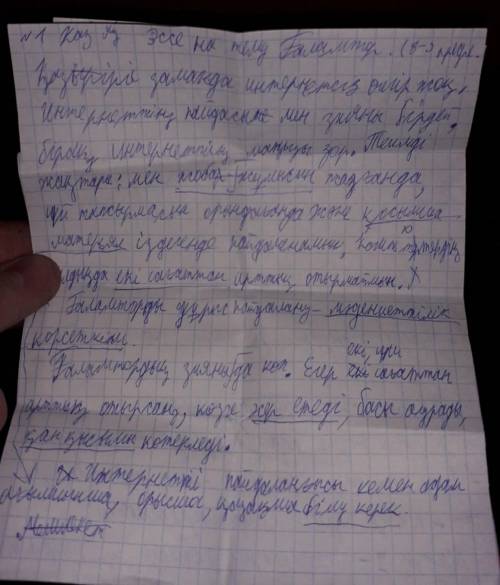 №1 Каз яз Эссе на тему Ғаламтор. (8-9 предл.
Қазіргі заманда интернетсіз өмір жоқ.
Интернеттің пайдасы мен зияны бірдей,
бірақ интернеттің маңызы зор. Тиімді
жақтары: мен жобаң жұмысын жазғанда,
үй тапсырмасын орындағанда және қосымша
материал іздегенде пайдаланамын,
алдында екі сағаттан артық отырмаймын.
Ғаламторды дұрыс пайдалану - мәдениеттілік
көрсеткіші.
Ғаламтордың зияны да көп. Егер екі, үш сағаттан
артық отырсаң, көзге әсер етеді, басы ауырады,
қан қысымы көтеріледі.
Интернетті пайдаланғысы келген адам
ағылшынша, орысша, қазақша білу керек.